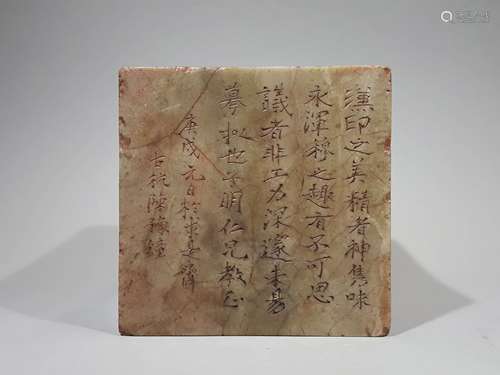 漢印之美精者神雋味
永渾穆之趣有不可思
議者非工力深邃未易
摹拟也子明仁兄教正
庚戌元日於求是齋
古杭陳豫鐘